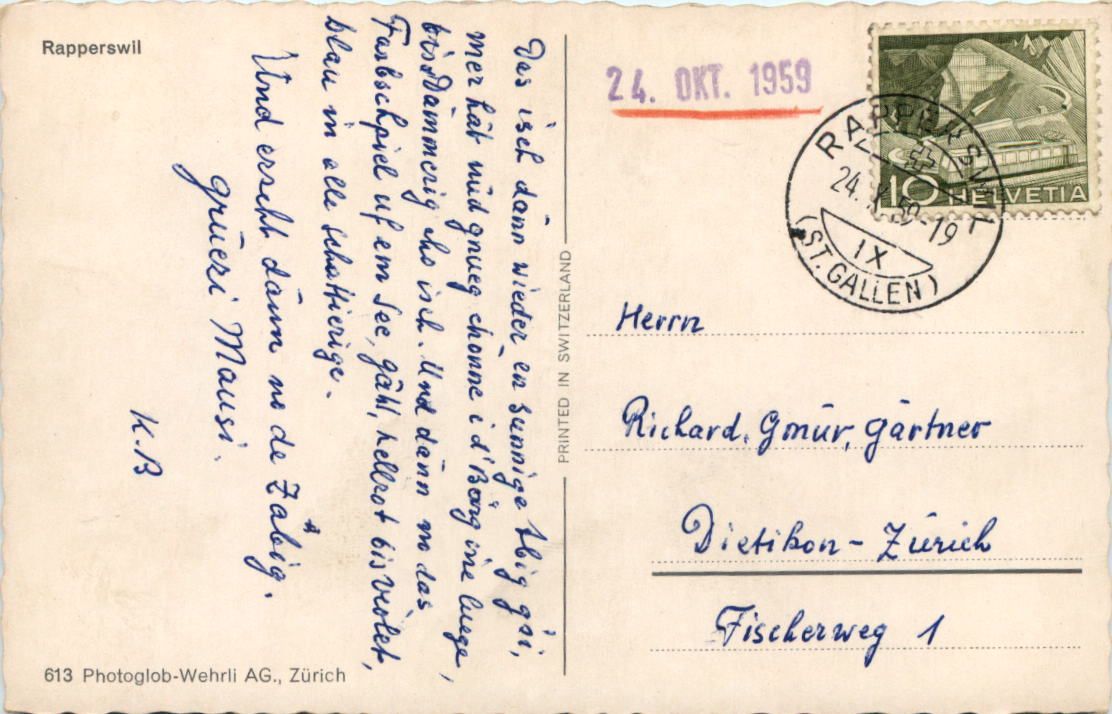 Rapperswil
Das isch dänn wieder en sunnige Abig gsi,
mer hät nüd gnueg chönne i d'Bärg ine luege,
bis Dämmerig cho isch. Und dänn no das
Farbschpiel uf em See, gähl, hellrot bis violet,
blau in alle schattierige.
Und erscht dänn no de Zabig.
grüezi Mausi.
K.B
613 Photoglob-Wehrli AG., Zürich
PRINTED IN SWITZERLAND
24. OKT. 1959
10 HELVETIA
RAPPERSWIL
24. X. 59-19
IX
(ST. GALLEN)
Herrn
Richard. Gmür, gärtner
Dietikon - Zürich
Fischerweg 1